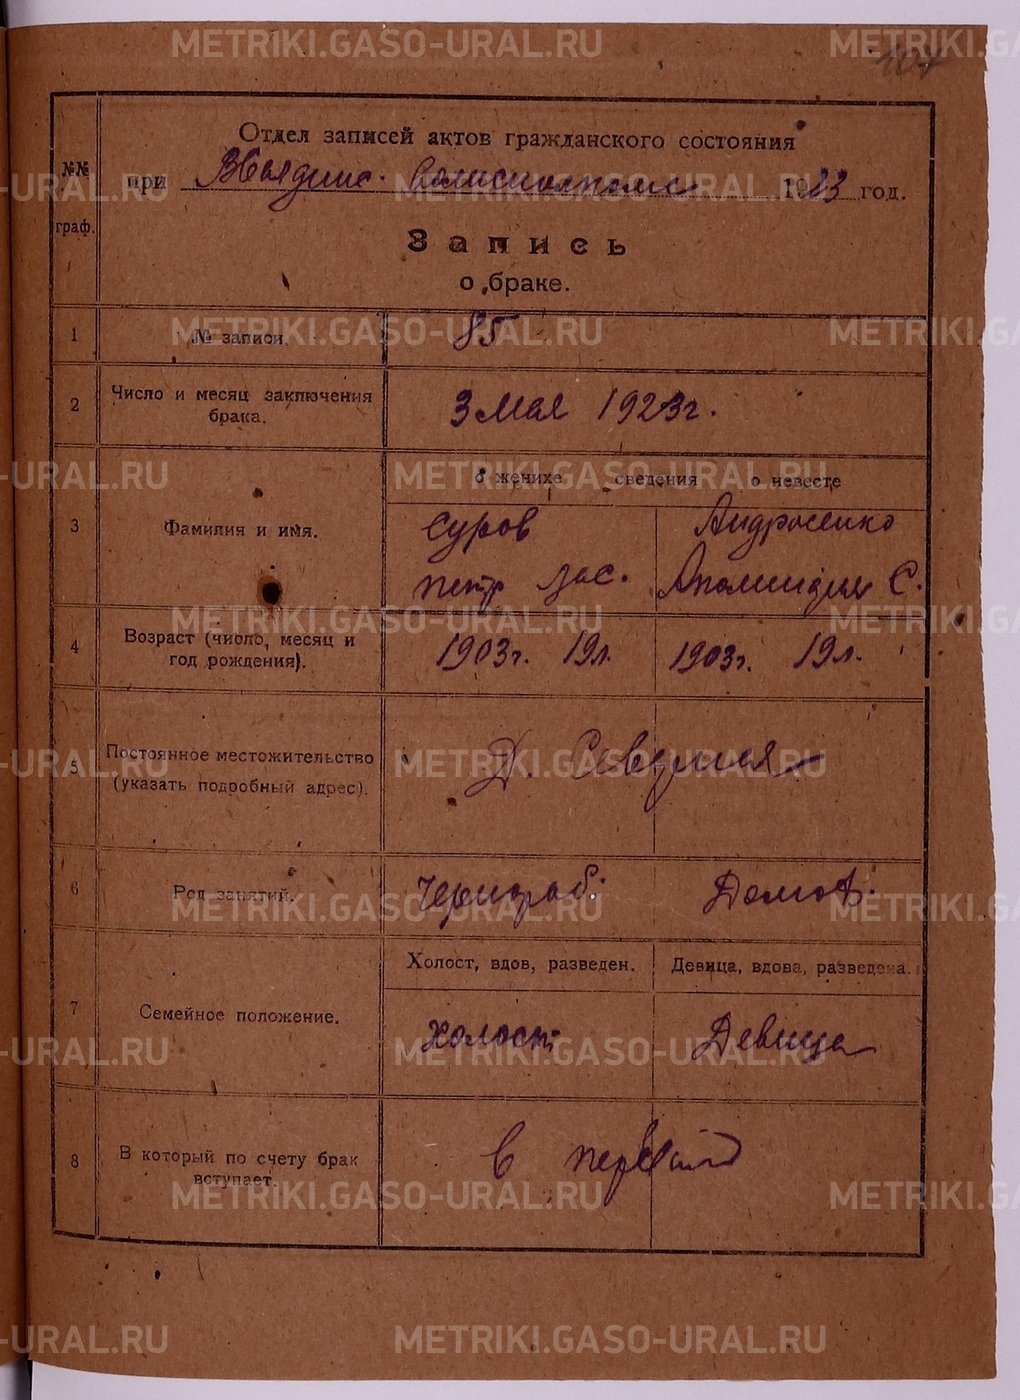 107
Отдел записей актов гражданского состояния
№№ граф.
при волисполкоме 1923 год.
Запись
о браке.
1 № записи. 85
2 Число и месяц заключения брака. 3 мая 1923 г.
о женихе сведения о невесте
3 Фамилия и имя.
Суров
Петр Вас.
Андросенко
С.
4 Возраст (число, месяц и год рождения). 1903 г. 19 л. 1903 г. 19 л.
5 Постоянное местожительство (указать подробный адрес). Д.
6 Род занятий. Чернораб. Домов.
Холост, вдов, разведен. Девица, вдова, разведена.
7 Семейное положение. холост Девица
8 В который по счету брак вступает. в первый
METRIKI.GASO-URAL.RU